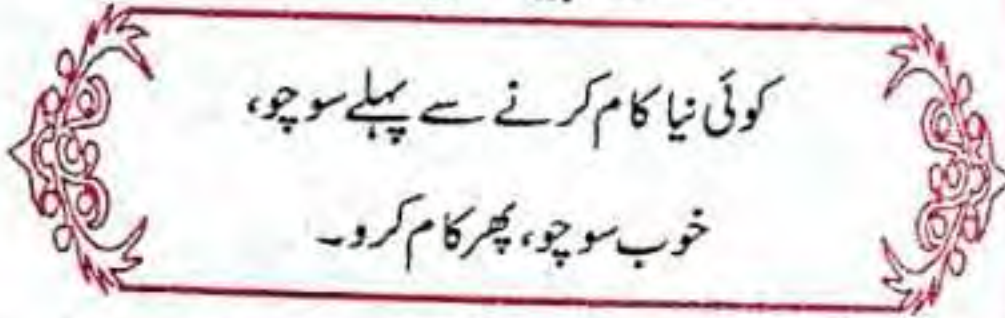 کوئی نیا کام کرنے سے پہلے سوچو،
خوب سوچو، پھر کام کرو۔